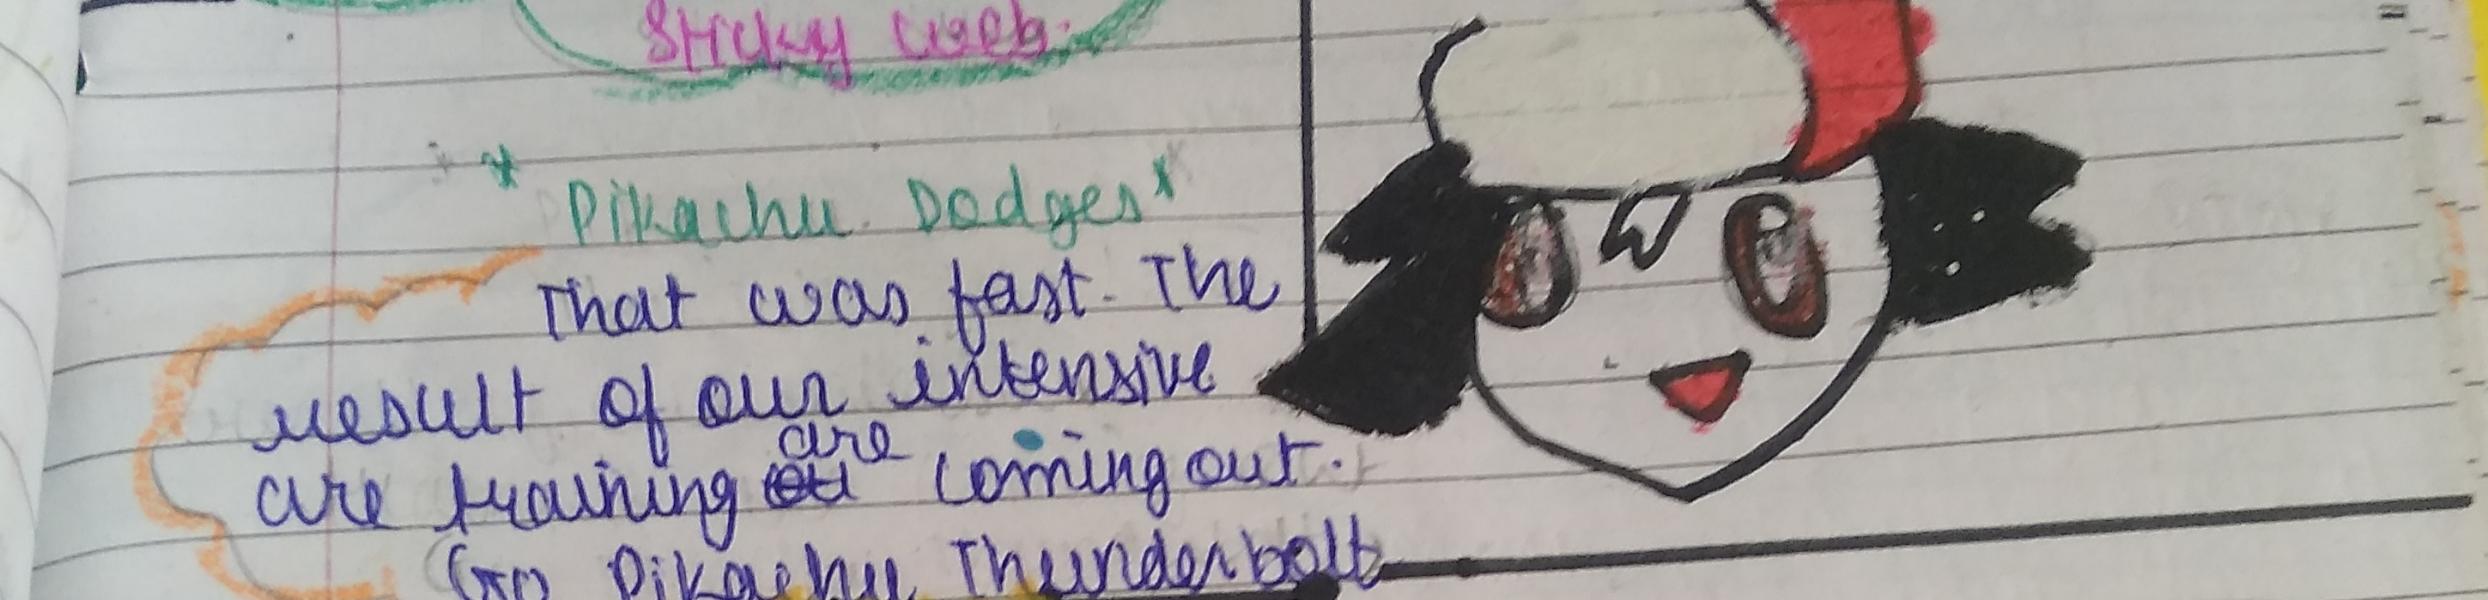 Sticky web.
* Pikachu Dodges*
That was fast. The
result of our intensive
are training are coming out.
Go Pikachu Thunderbolt